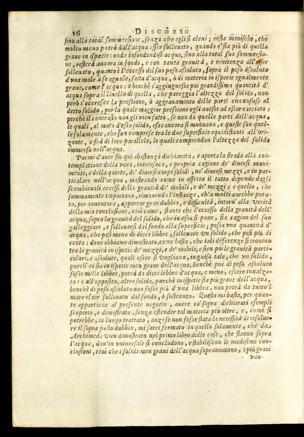 16 DISCORSO
sino alla total sommersione, senza che egli si elevi; resta manifesto, che
molto meno potrà dall'acqua esser sollevato, quando e' sia più di quella
grave in ispecie: onde infondendosi acqua, sino alla total sua sommersio-
ne, resterà ancora in fondo, e con tanta gravità, e renitenza all'esser
sollevato, quanto è l'eccesso del suo peso assoluto, sopra il peso assoluto
d'una mole a se eguale, fatta d'acqua, ò di materia in ispecie egualmente
grave, come l'acqua: e benchè s'aggiugnesse poi grandissima quantità d'
acqua sopra il livello di quella, che pareggia l'altezza del solido, non
però s'accresce la pressione, ò aggravamento delle parti circonfuse al
detto solido, per la quale maggior pressione egli avesse ad esser cacciato:
perchè il contrasto non gli vien fatto, se non da quelle parti dell'acqua,
le quali, al moto d'esso solido, esse ancora si muovono, e queste son quel-
le solamente, che son comprese tra le due superficie equidistanti all'ori-
zonte, e frà di loro parallele, le quali comprendon l'altezza del solido
immerso nell'acqua.
Parmi d'aver sin qui abbastanza dichiarata, e aperta la strada alla con-
templazione della vera, intrinseca, e propria cagione de' diversi movi-
menti, e della quiete, de' diversi corpi solidi, ne' diversi mezzi, e in par-
ticolare nell'acqua, mostrando come in effetto il tutto depende dagli
scambievoli eccessi della gravità de' mobili, e de' mezzi: e quello, che
sommamente importava, rimovendo l'instanze, ch'a molti avrebbe potu-
to, per avventura, apportar gran dubbio, e difficultà, intorn' alla verità
della mia conclusione, cioè come, stante che l'eccesso della gravità dell'
acqua, sopra la gravità del solido, che in essa si pone, sia cagion del suo
galleggiare, e sollevarsi dal fondo alla superficie; possa una quantità d'
acqua, che pesi meno di dieci libbre, sollevare un solido, che pesi più di
cento: dove abbiamo dimostrato, come basta, che tale differenza si trovi
tra le gravità in ispecie de' mezzi, e de' mobili, e sien poi le gravità parti-
colari, e assolute, quali esser si vogliano, in guisa tale, che un solido,
purch'ei sia in ispecie men grave dell'acqua, benchè poi di peso assoluto
fusse mille libbre, potrà da dieci libbre d'acqua, e meno, essere innalza-
to: e all'opposito, altro solido, purchè in ispecie sia più grave dell'acqua,
benchè di peso assoluto non fusse più d'una libbra, non potrà da tutto 'l
mare esser sollevato dal fondo,
appartiene al presente negozio, avere co' sopra dichiarati esempli
scoperto, e dimostrato, senza estender tal materia più oltre, e, come si
potrebbe, in lungo trattato, anzi se non fusse stata la necessità di risolve-
re il sopra posto dubbio, mi sarei fermato in quello solamente, che da
Archimede vien dimostrato nel primo libro delle cose, che stanno sopra
acqua, dov'in universale si concludono, e stabiliscon le medesime con-
clusioni, cioè che i solidi men gravi dell'acqua sopranuotano, i più gravi
van-